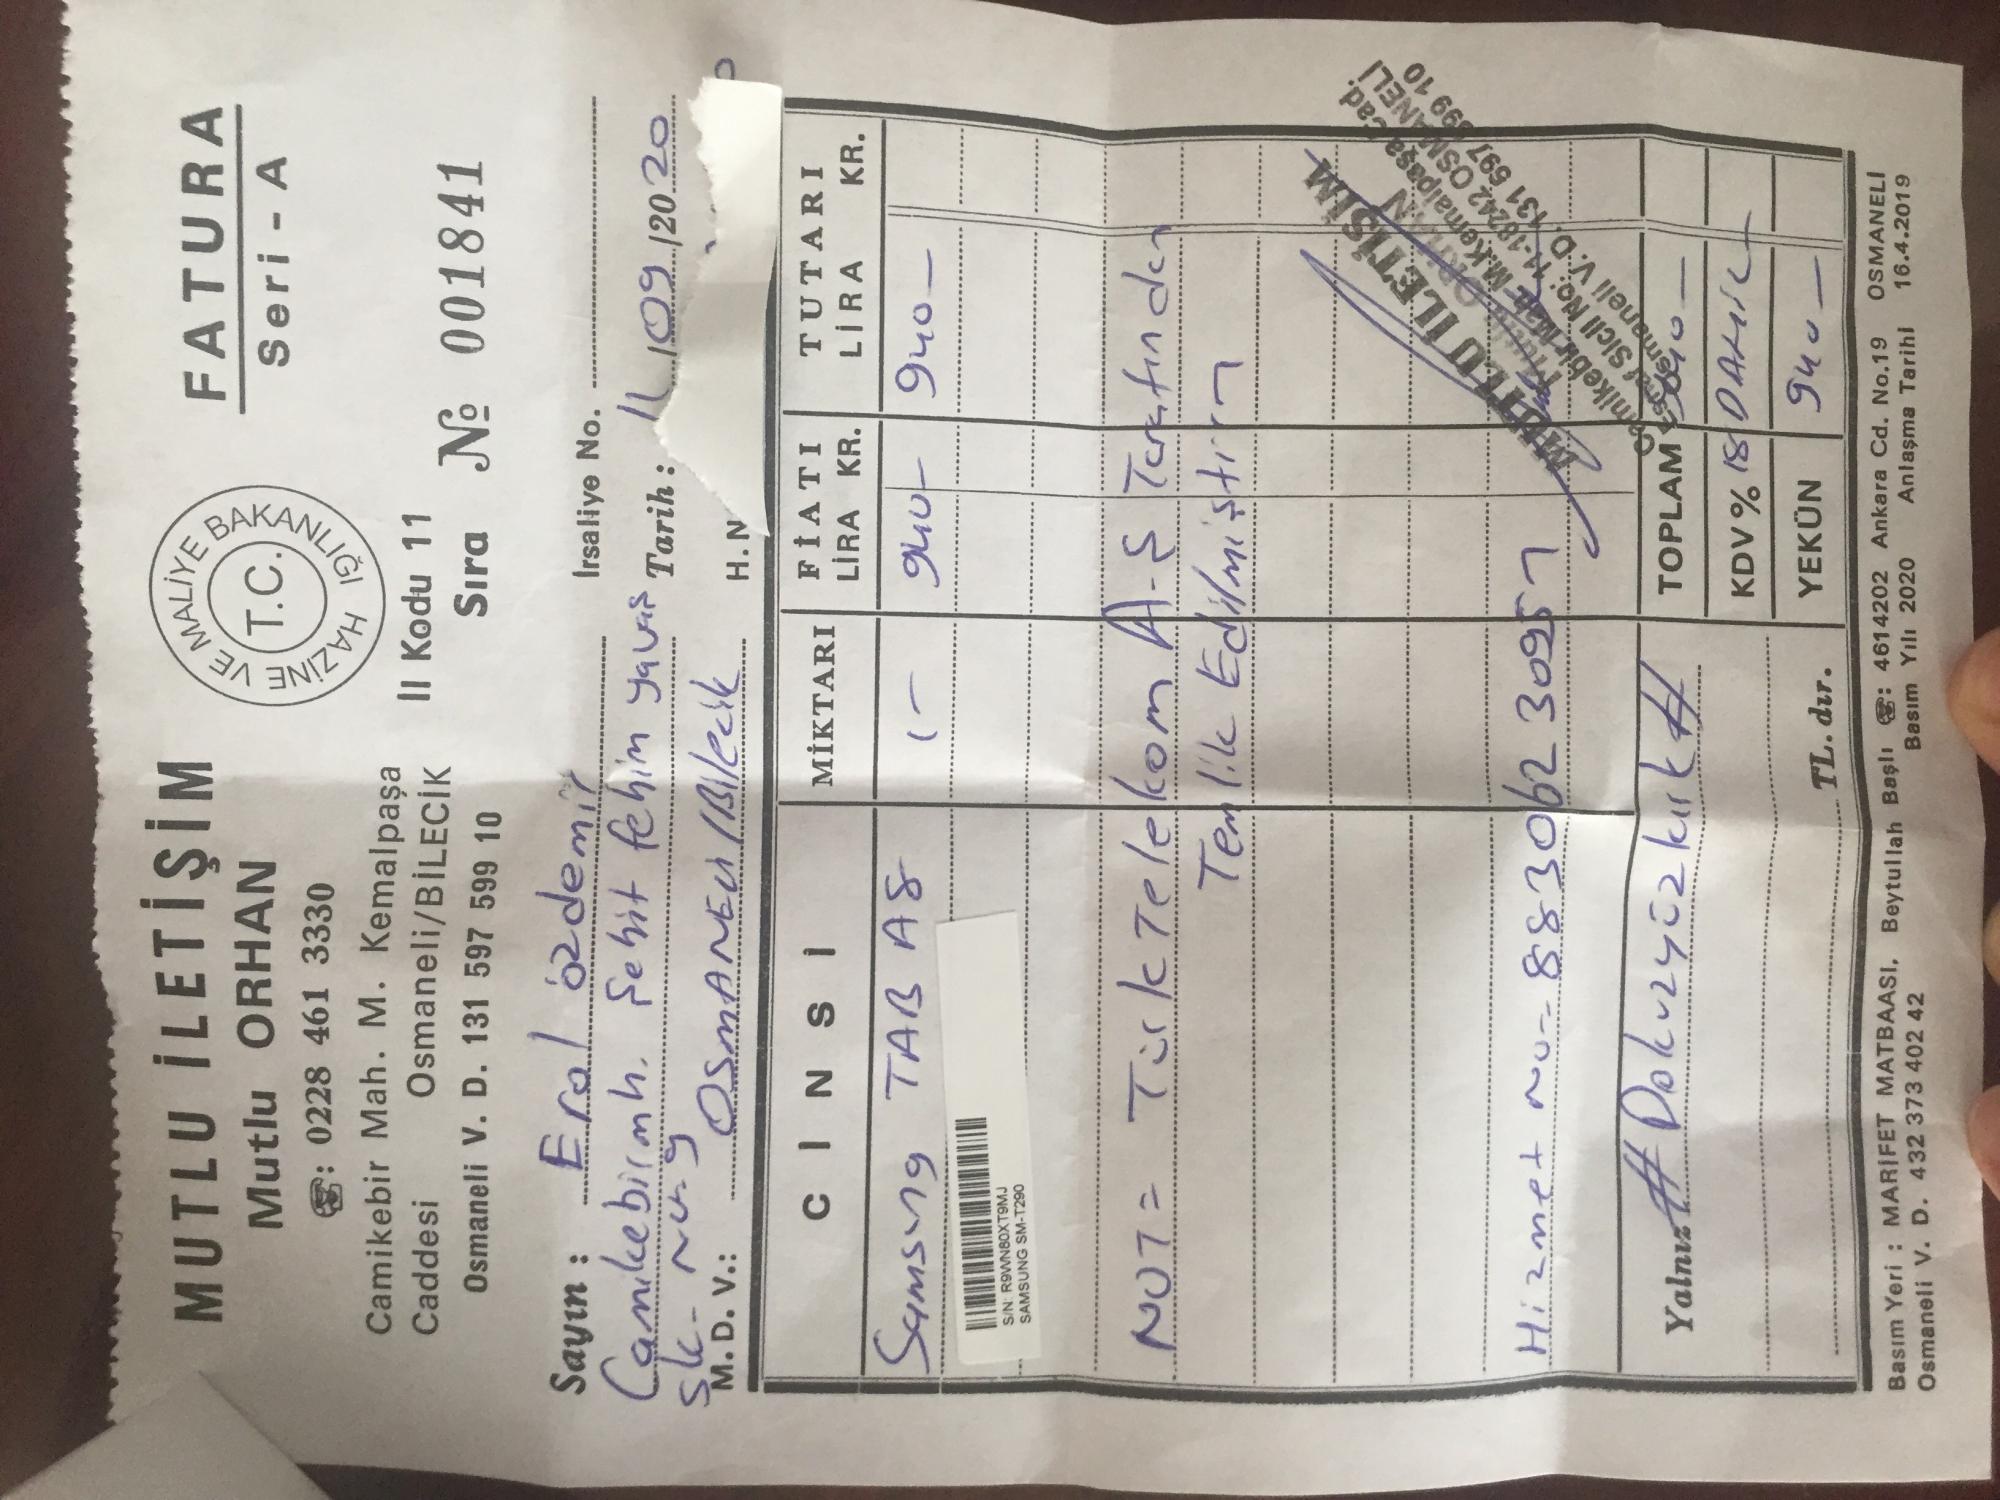 MUTLU İLETİŞİM
Mutlu ORHAN
☎: 0228 461 3330
Camikebir Mah. M. Kemalpaşa
Caddesi Osmaneli/BİLECİK
Osmaneli V. D. 131 597 599 10
HAZİNE VE MALİYE BAKANLIĞI
T.C.
Il Kodu 11
Sıra № 001841
FATURA
Seri - A
Sayın : Erol özdemir
Camikebir mh. Şehit fehim yavaş
Sk- NO-9
OSMANELİ/Bilecik
M. D. V.:
İrsaliye No.
Tarih : 11/09/2020
H. N
CINSİ MİKTARI FİATI TUTARI
LİRA KR. LİRA KR.
Samsung TAB A8 1- 940- 940-
S/N: R9WN80XT9MJ
SAMSUNG SM-T290
NOT= Türk Telekom A-Ş Tarafından
Temlik Edilmiştir
MUTLU İLETİŞİM
Mutlu ORHAN
Camikebir Mah. M.Kemalpaşa Cad.
Esnaf Sicil No: 11-18242 OSMANELİ
Osmaneli V.D. 131 597 599 10
Hizmet no- 8830623095
Yalnız # Dokuzyüzkırk #
TL. dır.
TOPLAM 940-
KDV % 18 DAHİL
YEKÜN 940-
Basım Yeri : MARİFET MATBAASI. Beytullah Başlı ☎: 4614202 Ankara Cd. No.19 OSMANELİ
Osmaneli V. D. 432 373 402 42 Basım Yılı 2020 Anlaşma Tarihi 16.4.2019